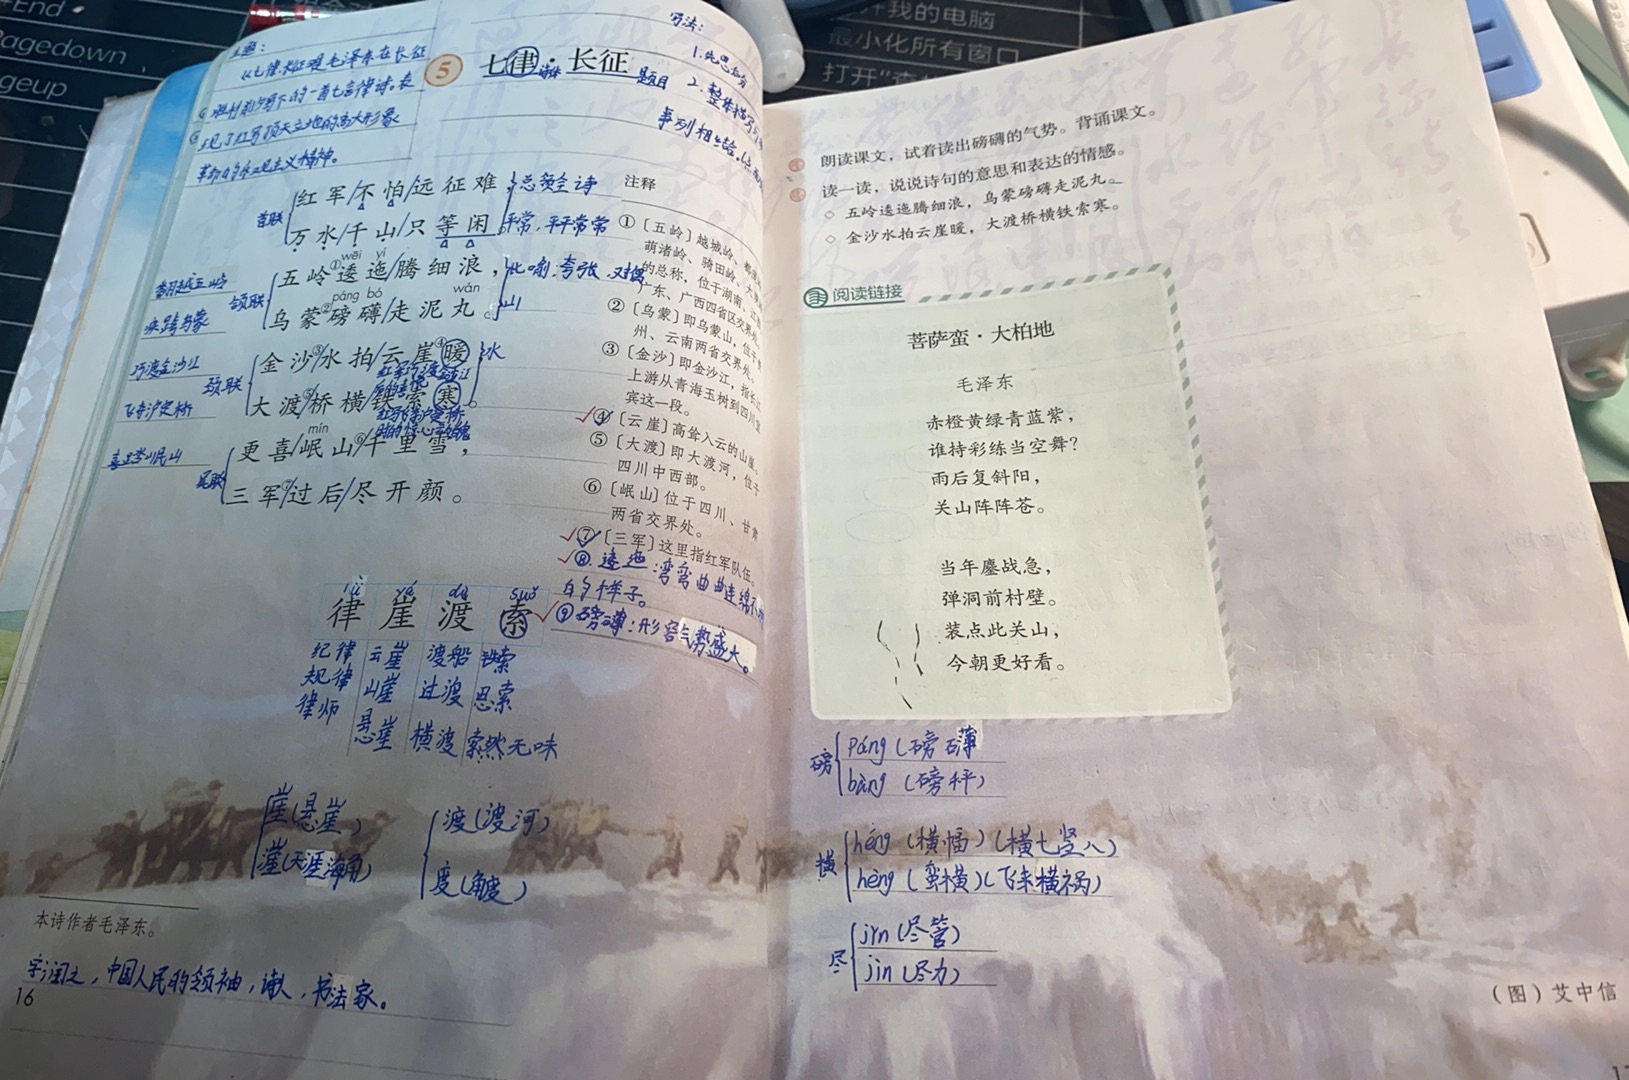 #End
Pagedown
geup
我的电脑
最小化所有窗口
主题：
《七律·长征》是毛泽东在长征
胜利前夕写下的一首七言律诗。表
现了红军顶天立地的高大形象
革命的乐观主义精神。
5 七律·长征
诗体 题目
写法：
1.先思后分
2.整体描写
事列相结
红军/不怕/远征难，
总领全诗
首联
万水/千山/只等闲。
平常，平平常常
wēi yí
五岭①逶迤/腾细浪，
比喻，夸张，对偶
páng bó wán
乌蒙②磅礴/走泥丸。
山
颔联
翻越五岭
疾跨乌蒙
金沙③/水拍/云崖④暖，
水
红军巧渡金沙江
后的喜悦
颈联
大渡⑤/桥横/铁索寒。
巧渡金沙江
飞夺泸定桥
mín
更喜/岷山⑥/千里雪，
喜踏岷山
尾联
三军⑦/过后/尽开颜。
注释
①〔五岭〕越城岭、都庞
萌渚岭、骑田岭、大
的总称，位于湖南、江西
广东、广西四省区交界处
②〔乌蒙〕即乌蒙山，位于贵
州、云南两省交界处。
③〔金沙〕即金沙江，指长江
上游从青海玉树到四川宜
宾这一段。
④〔云崖〕高耸入云的山崖。
⑤〔大渡〕即大渡河，位于
四川中西部。
⑥〔岷山〕位于四川、甘肃
两省交界处。
⑦〔三军〕这里指红军队伍。
⑧.逶迤：弯弯曲曲连绵不
的样子。
⑨磅礴：形容气势盛大。
lǜ yá dù suǒ
律 崖 渡 索
纪律 云崖 渡船 铁索
规律 山崖 过渡 思索
律师 悬崖 横渡 索然无味
崖（悬崖）
涯（天涯海角）
渡（渡河）
度（角度）
本诗作者毛泽东。
字润之，中国人民的领袖，诗人，书法家。
16
朗读课文，试着读出磅礴的气势。背诵课文。
读一读，说说诗句的意思和表达的情感。
◇ 五岭逶迤腾细浪，乌蒙磅礴走泥丸。
◇ 金沙水拍云崖暖，大渡桥横铁索寒。
阅读链接
菩萨蛮·大柏地
毛泽东
赤橙黄绿青蓝紫，
谁持彩练当空舞？
雨后复斜阳，
关山阵阵苍。
当年鏖战急，
弹洞前村壁。
装点此关山，
今朝更好看。
磅
páng（磅礴
bàng（磅秤）
横
héng（横幅）（横七竖八）
hèng（蛮横）（飞来横祸）
尽
jǐn（尽管）
jìn（尽力）
（图）艾中信